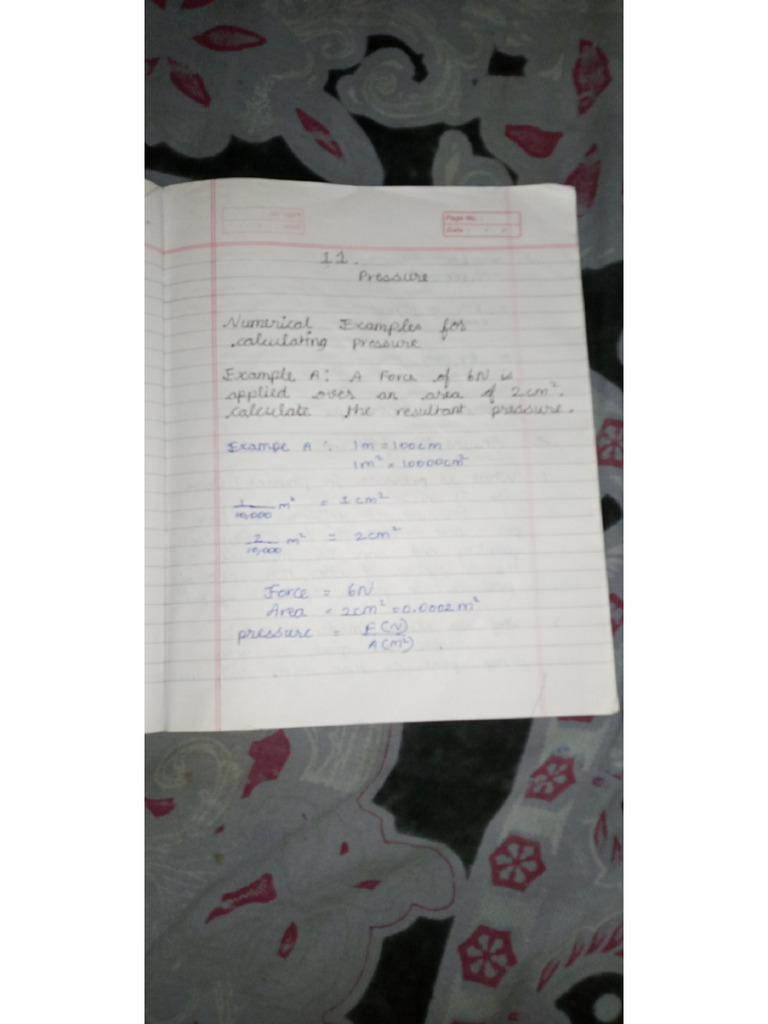 Page No. :
Date : / /
11.
Pressure
Numerical Examples for
calculating pressure
Example A: A Force of 6N is
applied over an area of 2cm².
calculate the resultant pressure.
Exampe A : 1m = 100cm
1m² = 10000cm²
1/10,000 m² = 1cm²
2/10,000 m² = 2cm²
Force = 6N
Area = 2cm² = 0.0002m²
pressure = F(N)/A(m²)